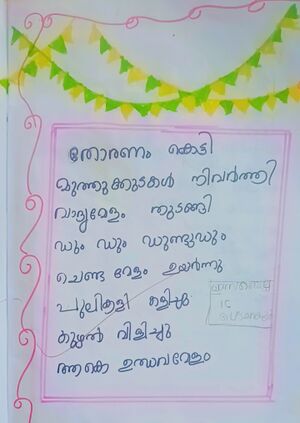 തോരണം കെട്ടി
മുത്തുക്കുടകൾ നിവർത്തി
വാദ്യമേളം തുടങ്ങി
ഡും ഡും ഡുണ്ടുഡും
ചെണ്ട മേളം ഉയർന്നു
പുലികളി കളിച്ചു
കുഴൽ വിളിച്ചു
ആകെ ഉത്സവമേളം